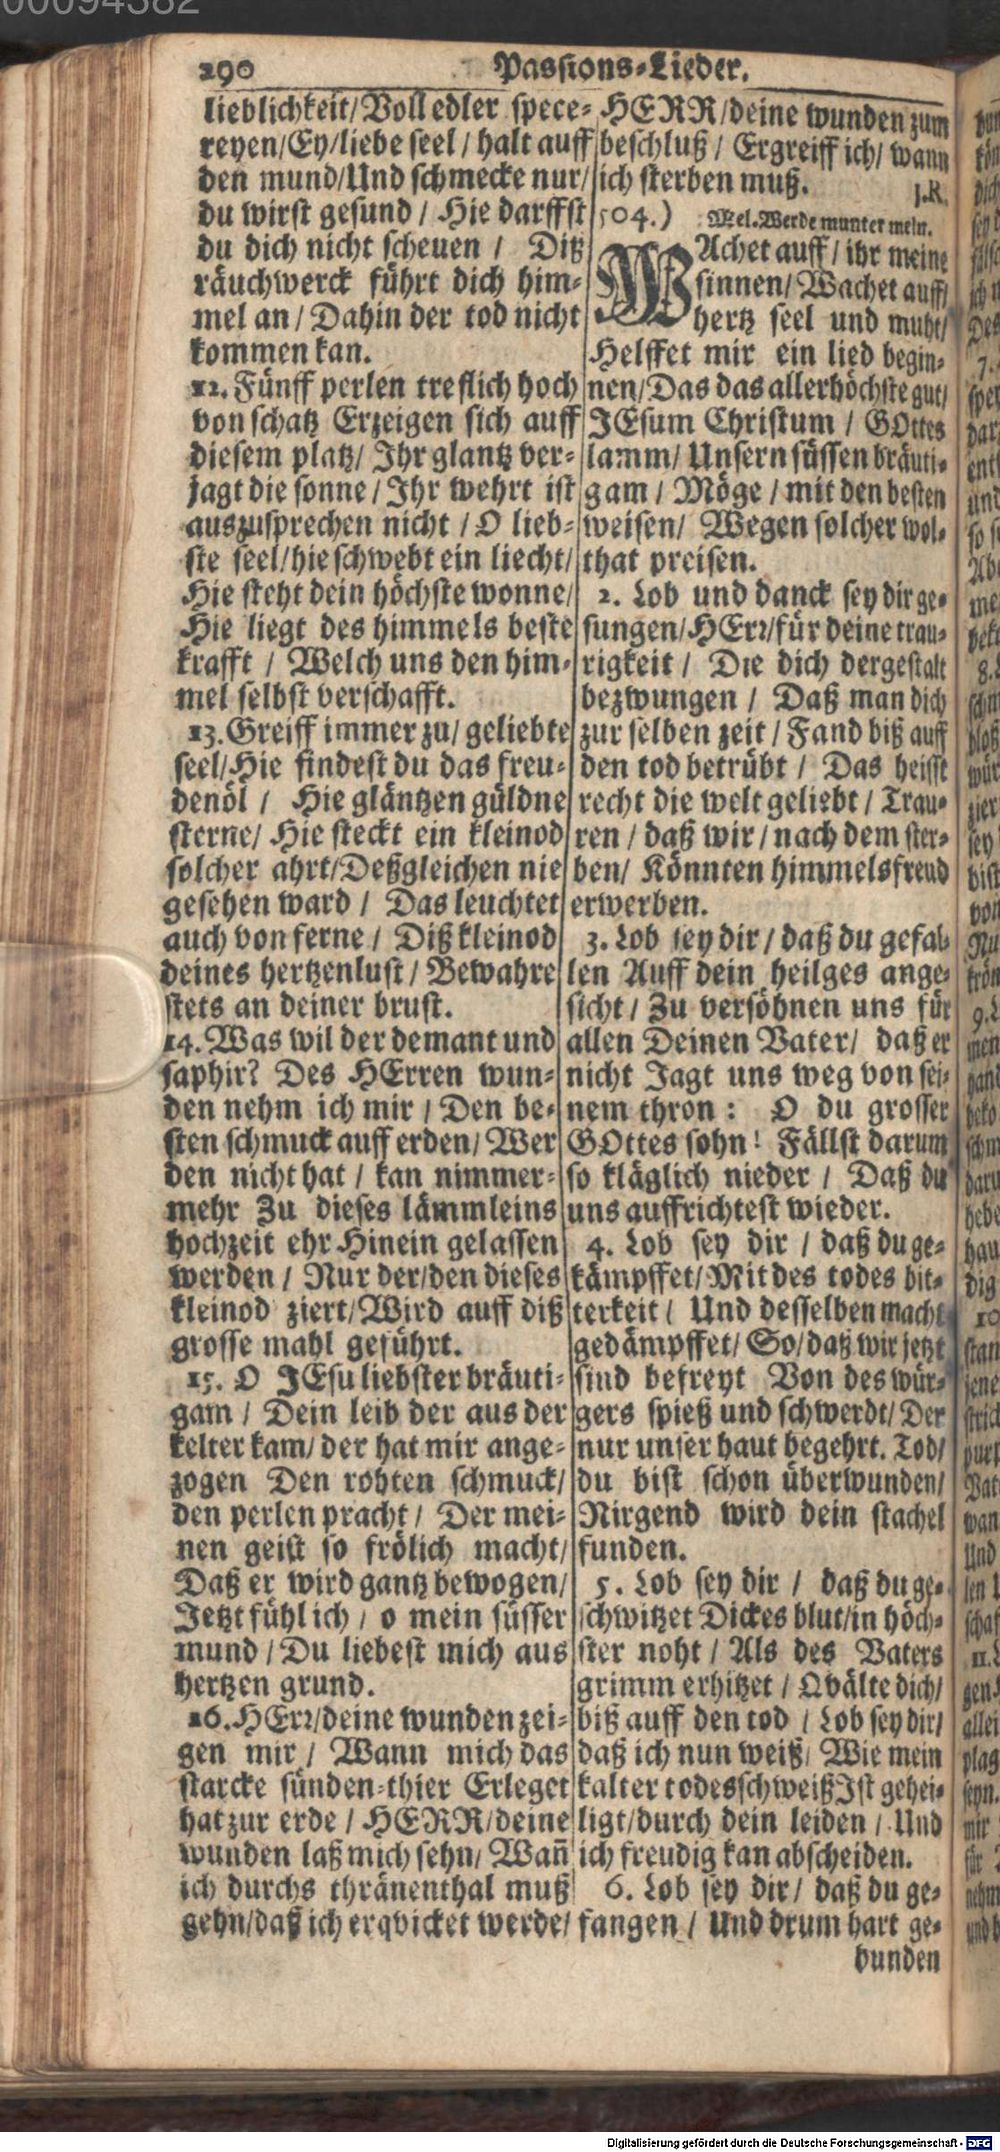 290 Passions-Lieder.
lieblichkeit/Voll edler spece-
reyen/Ey/liebe seel / halt auff
den mund/Und schmecke nur/
du wirst gesund / Hie darffst
du dich nicht scheuen / Diß
räuchwerck führt dich him-
mel an / Dahin der tod nicht
kommen kan.
12. Fünff perlen treflich hoch
von schatz Erzeigen sich auff
diesem platz/ Ihr glantz ver-
jagt die sonne / Ihr wehrt ist
auszusprechen nicht / O lieb-
ste seel/hie schwebt ein liecht/
Hie steht dein höchste wonne/
Hie liegt des himmels beste
krafft / Welch uns den him-
mel selbst verschafft.
13. Greiff immer zu/ geliebte
seel/Hie findest du das freu-
denöl / Hie gläntzen güldne
sterne/ Hie steckt ein kleinod
solcher ahrt/Deßgleichen nie
gesehen ward / Das leuchtet
auch von ferne / Diß kleinod
deines hertzenlust / Bewahre
stets an deiner brust.
14. Was wil der demant und
saphir? Des HErren wun-
den nehm ich mir / Den be-
sten schmuck auff erden/ Wer
den nicht hat / kan nimmer-
mehr Zu dieses lämmleins
hochzeit ehr Hinein gelassen
werden / Nur der/den dieses
kleinod ziert/Wird auff diß
grosse mahl geführt.
15. O JEsu liebster bräuti-
gam / Dein leib der aus der
kelter kam/ der hat mir ange-
zogen Den rohten schmuck/
den perlen pracht / Der mei-
nen geist so frölich macht/
Daß er wird gantz bewogen/
Jetzt fühl ich / o mein süsser
mund / Du liebest mich aus
hertzen grund.
16. HErr/deine wunden zei-
gen mir / Wann mich das
starcke sünden-thier Erleget
hat zur erde / HERR/deine
wunden laß mich sehn/ Wañ
ich durchs thränenthal muß
gehn/daß ich erqvicket werde/
HERR/deine wunden zum
beschluß / Ergreiff ich/ wann
ich sterben muß. J.R.
504.) Mel. Werde munter mein.
WAchet auff / ihr meine
sinnen/ Wachet auff/
hertz seel und muht/
Helffet mir ein lied begin-
nen/Das das allerhöchste gut/
JEsum Christum / GOttes
lamm/ Unsern süssen bräuti-
gam / Möge / mit den besten
weisen/ Wegen solcher wol-
that preisen.
2. Lob und danck sey dir ge-
sungen/HErr/für deine trau-
rigkeit / Die dich dergestalt
bezwungen / Daß man dich
zur selben zeit / Fand biß auff
den tod betrübt / Das heisst
recht die welt geliebt / Trau-
ren / daß wir / nach dem ster-
ben/ Könnten himmelsfreud
erwerben.
3. Lob sey dir / daß du gefal-
len Auff dein heilges ange-
sicht / Zu versöhnen uns für
allen Deinen Vater/ daß er
nicht Jagt uns weg von sei-
nem thron: O du grosser
GOttes sohn! Fällst darum
so kläglich nieder / Daß du
uns auffrichtest wieder.
4. Lob sey dir / daß du ge-
kämpffet/Mit des todes bit-
terkeit / Und desselben macht
gedämpffet/ So/daß wir jetzt
sind befreyt Von des wür-
gers spieß und schwerdt/ Der
nur unser haut begehrt. Tod/
du bist schon überwunden/
Nirgend wird dein stachel
funden.
5. Lob sey dir / daß du ge-
schwitzet Dickes blut/in höch-
ster noht / Als des Vaters
grimm erhitzet / Qvälte dich/
biß auff den tod / Lob sey dir/
daß ich nun weiß/ Wie mein
kalter todesschweiß Ist gehei-
ligt/durch dein leiden / Und
ich freudig kan abscheiden.
6. Lob sey dir/ daß du ge-
fangen / Und drum hart ge-
bunden
Digitalisierung gefördert durch die Deutsche Forschungsgemeinschaft - DFG